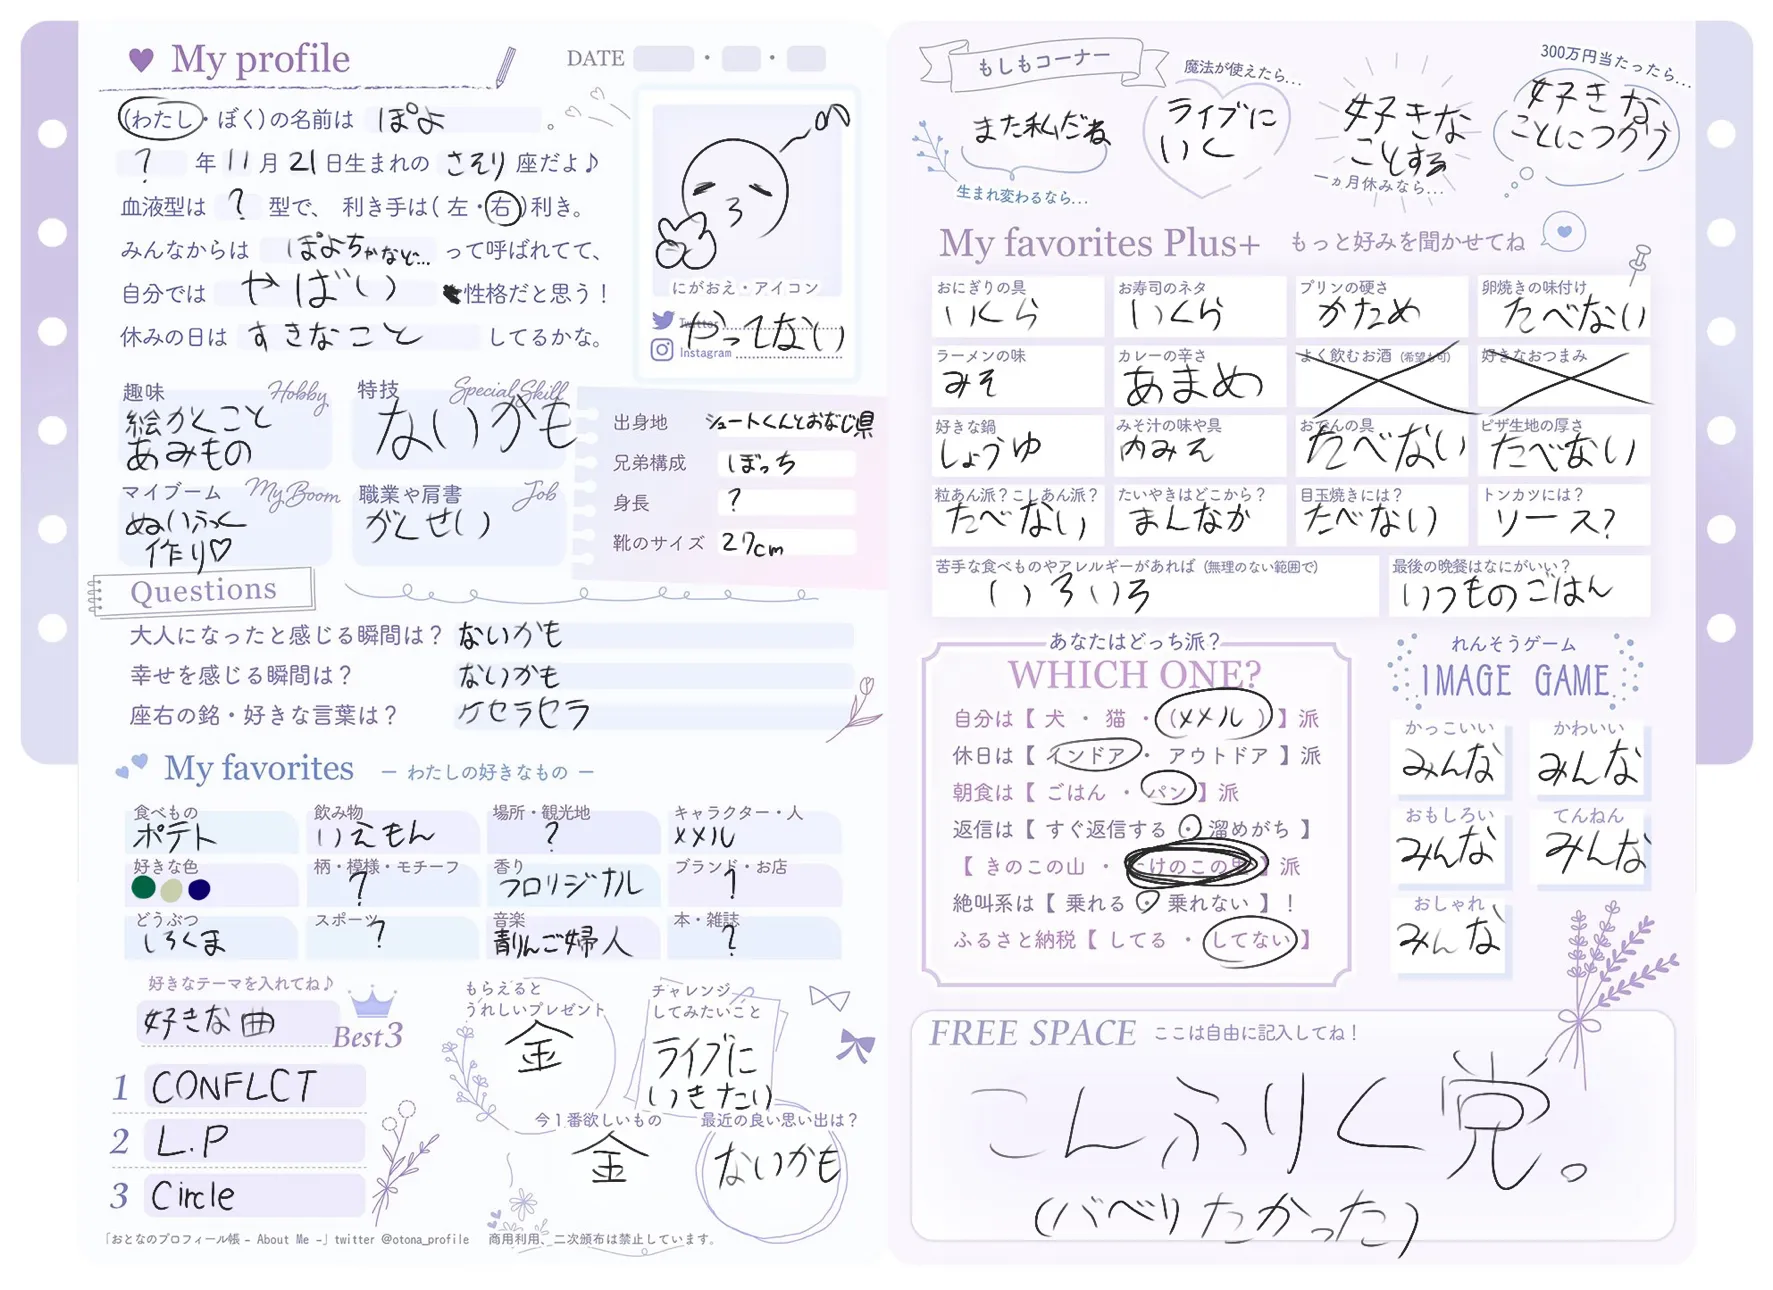 My profile
DATE ・ ・
(わたし・ぼく)の名前は ぽよ 。
? 年 11 月 21 日生まれの さそり 座だよ♪
血液型は ? 型で、 利き手は( 左・右 )利き。
みんなからは ぽよちゃなど… って呼ばれてて、
自分では やばい 性格だと思う!
休みの日は すきなこと してるかな。
にがおえ・アイコン
Twitter
やってない
Instagram
趣味 Hobby
絵かくこと
あみもの
特技 Special Skill
ないかも
マイブーム My Boom
ぬいふく
作り♡
職業や肩書 Job
がくせい
出身地 シュートくんとおなじ県
兄弟構成 ぼっち
身長 ?
靴のサイズ 27cm
Questions
大人になったと感じる瞬間は? ないかも
幸せを感じる瞬間は? ないかも
座右の銘・好きな言葉は? ケセラセラ
My favorites ー わたしの好きなもの ー
食べもの 飲み物 場所・観光地 キャラクター・人
ポテト いえもん ? メメル
好きな色 柄・模様・モチーフ 香り ブランド・お店
? フロリジナル ?
どうぶつ スポーツ 音楽 本・雑誌
しろくま ? 青りんご婦人 ?
好きなテーマを入れてね♪
好きな曲
Best3
1 CONFLCT
2 L.P
3 Circle
もらえると
うれしいプレゼント
金
チャレンジ
してみたいこと
ライブに
いきたい
今1番欲しいもの
金
最近の良い思い出は?
ないかも
「おとなのプロフィール帳 - About Me -」twitter @otona_profile 商用利用、二次頒布は禁止しています。
もしもコーナー
また私だね
生まれ変わるなら...
魔法が使えたら...
ライブに
いく
好きな
ことする
一ヵ月休みなら...
300万円当たったら...
好きな
ことにつかう
My favorites Plus+ もっと好みを聞かせてね
おにぎりの具 お寿司のネタ プリンの硬さ 卵焼きの味付け
いくら いくら かため たべない
ラーメンの味 カレーの辛さ よく飲むお酒 (希望も可) 好きなおつまみ
みそ あまめ
好きな鍋 みそ汁の味や具 おでんの具 ピザ生地の厚さ
しょうゆ 肉みそ たべない たべない
粒あん派?こしあん派? たいやきはどこから? 目玉焼きには? トンカツには?
たべない まんなか たべない ソース?
苦手な食べものやアレルギーがあれば (無理のない範囲で) 最後の晩餐はなにがいい?
いろいろ いつものごはん
あなたはどっち派?
WHICH ONE?
自分は【 犬 ・ 猫 ・ (メメル ) 】派
休日は【 インドア ・ アウトドア 】派
朝食は【 ごはん ・ パン 】派
返信は【 すぐ返信する ・ 溜めがち 】
【 きのこの山 ・ たけのこの里 】派
絶叫系は【 乗れる ・ 乗れない 】!
ふるさと納税【 してる ・ してない 】
れんそうゲーム
IMAGE GAME
かっこいい かわいい
みんな みんな
おもしろい てんねん
みんな みんな
おしゃれ
みんな
FREE SPACE ここは自由に記入してね!
こんふりく党。
(バベりたかった)